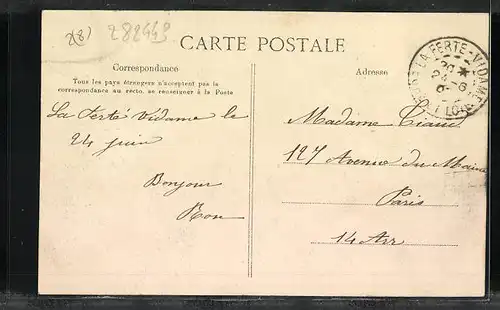 2(8) 282443
CARTE POSTALE
Correspondance
Tous les pays étrangers n'acceptent pas la
correspondance au recto, se renseigner à la Poste
Adresse
LA FERTÉ-VIDAME
24 - 6
La Ferté Vidame le
24 juin
Bonjour
Madame
127 Avenue du Maine
Paris
14 Arr